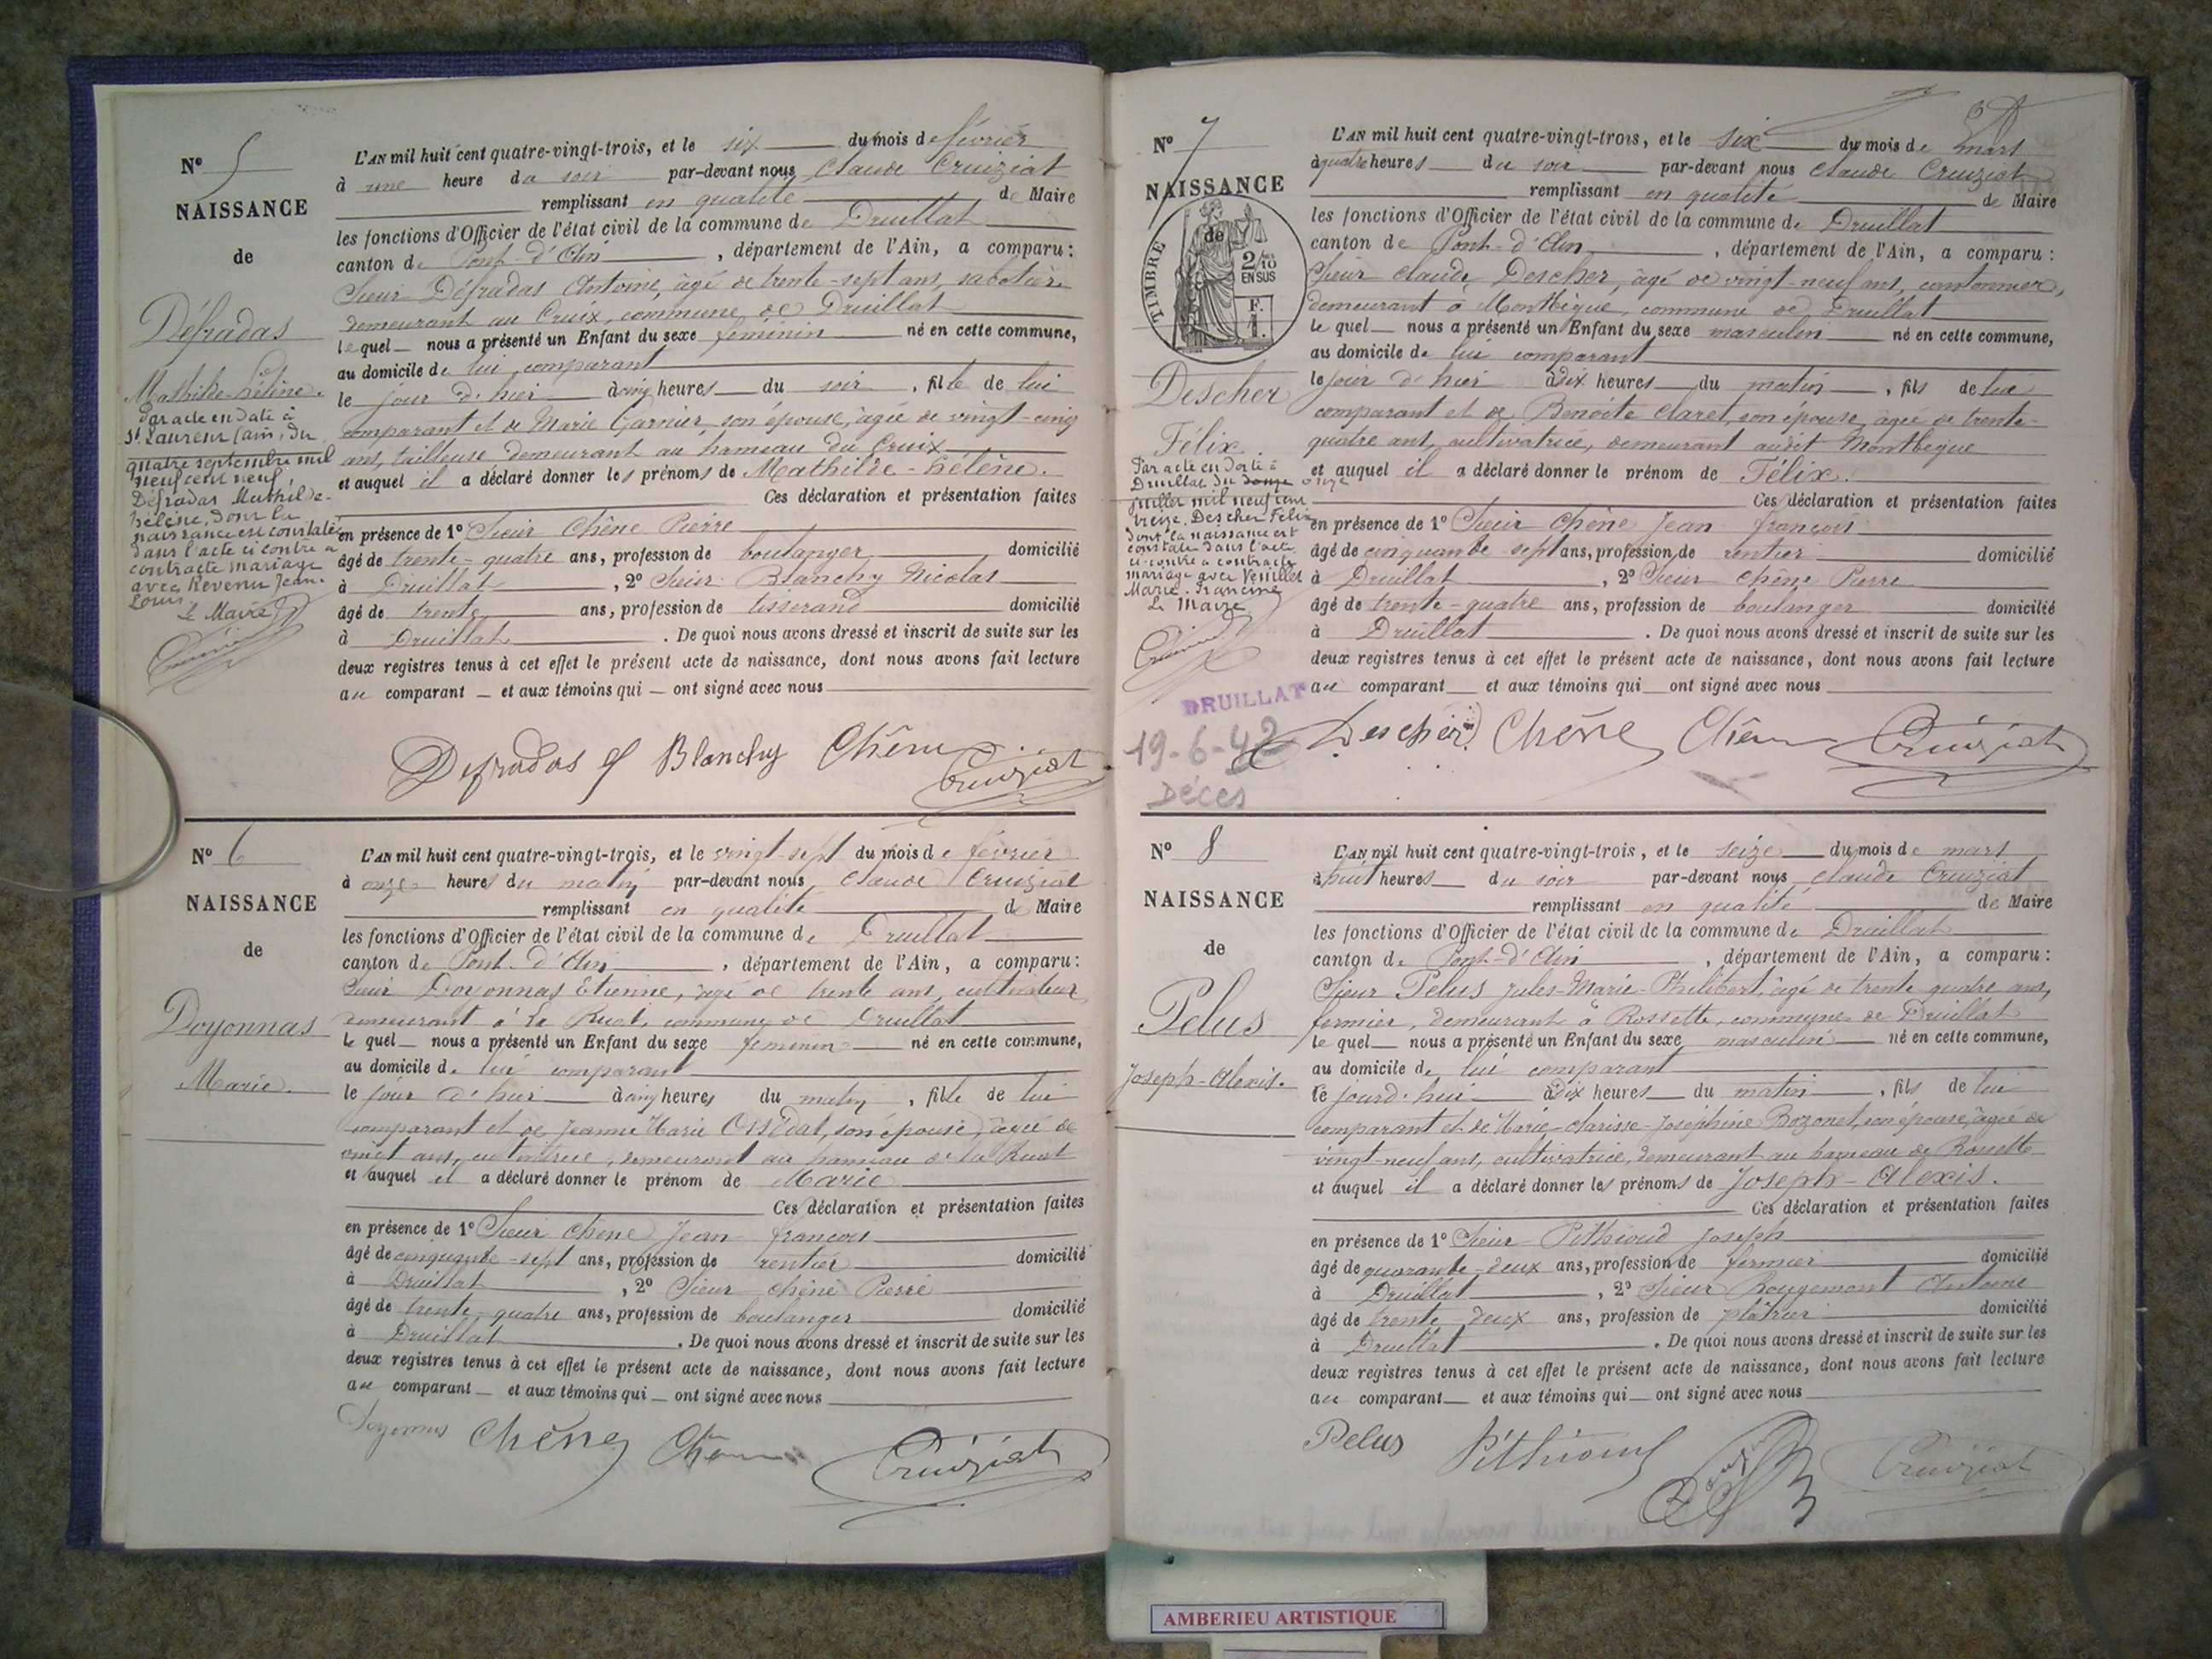 Nº 5
NAISSANCE
de
Défradas
Mathilde-Hélène.
Par acte en date à
St Laurent (ain) du
quatre septembre mil
neuf cent neuf,
Défradas Mathilde-
hélène, dont la
naissance est constatée
dans l'acte ci contre a
contracté mariage
avec Revenu Jean-
Louis
Le Maire
L'AN mil huit cent quatre-vingt-trois, et le six du mois de février
à une heure du soir par-devant nous Claude Cruiziat
remplissant en qualité de Maire
les fonctions d'Officier de l'état civil de la commune de Druillat
canton de Pont-d'Ain, département de l'Ain, a comparu :
Sieur Défradas Antoine, âgé de trente-sept ans, sabotier
demeurant au Cruix, commune de Druillat
lequel nous a présenté un Enfant du sexe féminin né en cette commune,
au domicile de lui comparant
le jour d'hier à cinq heures du soir, fille de lui
comparant et de Marie Garnier, son épouse, âgée de vingt-cinq
ans, tailleuse demeurant au hameau du Cruix
et auquel il a déclaré donner les prénoms de Mathilde-hélène.
Ces déclaration et présentation faites
en présence de 1º Sieur Chêne Pierre
âgé de trente-quatre ans, profession de boulanger domicilié
à Druillat, 2º Sieur Blanchy Nicolas
âgé de trente ans, profession de tisserand domicilié
à Druillat. De quoi nous avons dressé et inscrit de suite sur les
deux registres tenus à cet effet le présent acte de naissance, dont nous avons fait lecture
au comparant et aux témoins qui ont signé avec nous
Defradas Blanchy Chêne
Cruiziat
Nº 6
NAISSANCE
de
Doyonnas
Marie.
L'AN mil huit cent quatre-vingt-trois, et le vingt-sept du mois de février
à onze heures du matin par-devant nous Claude Cruiziat
remplissant en qualité de Maire
les fonctions d'Officier de l'état civil de la commune de Druillat
canton de Pont-d'Ain, département de l'Ain, a comparu :
Sieur Doyonnas Etienne, âgé de trente ans, cultivateur
demeurant à la Ruat, commune de Druillat
lequel nous a présenté un Enfant du sexe féminin né en cette commune,
au domicile de lui comparant
le jour d'hier à cinq heures du matin, fille de lui
comparant et de Jeanne Marie son épouse, âgée de
ans, cultivatrice, demeurant au hameau de la Ruat
et auquel il a déclaré donner le prénom de Marie
Ces déclaration et présentation faites
en présence de 1º Sieur Chêne Jean françois
âgé de cinquante-sept ans, profession de rentier domicilié
à Druillat, 2º Sieur Chêne Pierre
âgé de trente-quatre ans, profession de boulanger domicilié
à Druillat. De quoi nous avons dressé et inscrit de suite sur les
deux registres tenus à cet effet le présent acte de naissance, dont nous avons fait lecture
au comparant et aux témoins qui ont signé avec nous
Doyonnas Chêne Chêne Cruiziat
Nº 7
NAISSANCE
de
TIMBRE
2/10
EN SUS
F.
1
Descher
Félix
Par acte en date à
Druillat du douze onze
juillet mil neuf cent
treize, Descher Félix
dont la naissance est
constatée dans l'acte
ci-contre a contracté
mariage avec Venillet
Marie-Francine
Le Maire
DRUILLAT
19-6-42
Décès
L'AN mil huit cent quatre-vingt-trois, et le six du mois de mars
à quatre heures du soir par-devant nous Claude Cruiziat
remplissant en qualité de Maire
les fonctions d'Officier de l'état civil de la commune de Druillat
canton de Pont-d'Ain, département de l'Ain, a comparu :
Sieur Claude Descher, âgé de vingt-neuf ans, cantonnier,
demeurant à Montbègue, commune de Druillat
lequel nous a présenté un Enfant du sexe masculin né en cette commune,
au domicile de lui comparant
le jour d'hier à dix heures du matin, fils de lui
comparant et de Benoite Claret, son épouse, âgée de trente-
quatre ans, cultivatrice, demeurant audit Montbègue
et auquel il a déclaré donner le prénom de Félix.
Ces déclaration et présentation faites
en présence de 1º Sieur Chêne Jean françois
âgé de cinquante-sept ans, profession de rentier domicilié
à Druillat, 2º Sieur Chêne Pierre
âgé de trente-quatre ans, profession de boulanger domicilié
à Druillat. De quoi nous avons dressé et inscrit de suite sur les
deux registres tenus à cet effet le présent acte de naissance, dont nous avons fait lecture
au comparant et aux témoins qui ont signé avec nous
Descher Chêne Chêne Cruiziat
Nº 8
NAISSANCE
de
Pelus
Joseph-Alexis.
L'AN mil huit cent quatre-vingt-trois, et le seize du mois de mars
à huit heures du soir par-devant nous Claude Cruiziat
remplissant en qualité de Maire
les fonctions d'Officier de l'état civil de la commune de Druillat
canton de Pont-d'Ain, département de l'Ain, a comparu :
Sieur Pelus Jules-Marie-Philibert, âgé de trente quatre ans,
fermier, demeurant à Rossette, commune de Druillat
lequel nous a présenté un Enfant du sexe masculin né en cette commune,
au domicile de lui comparant
le jourd'hui à dix heures du matin, fils de lui
comparant et de Marie-Clarisse-Joséphine Bozonet, son épouse, âgée de
vingt-neuf ans, cultivatrice, demeurant au hameau de Rossette
et auquel il a déclaré donner les prénoms de Joseph-Alexis.
Ces déclaration et présentation faites
en présence de 1º Sieur Pithioud Joseph
âgé de quarante-deux ans, profession de fermier domicilié
à Druillat, 2º Sieur Rougemont Antoine
âgé de trente-deux ans, profession de plâtrier domicilié
à Druillat. De quoi nous avons dressé et inscrit de suite sur les
deux registres tenus à cet effet le présent acte de naissance, dont nous avons fait lecture
au comparant et aux témoins qui ont signé avec nous
Pelus Pithioud Cruiziat
AMBERIEU ARTISTIQUE